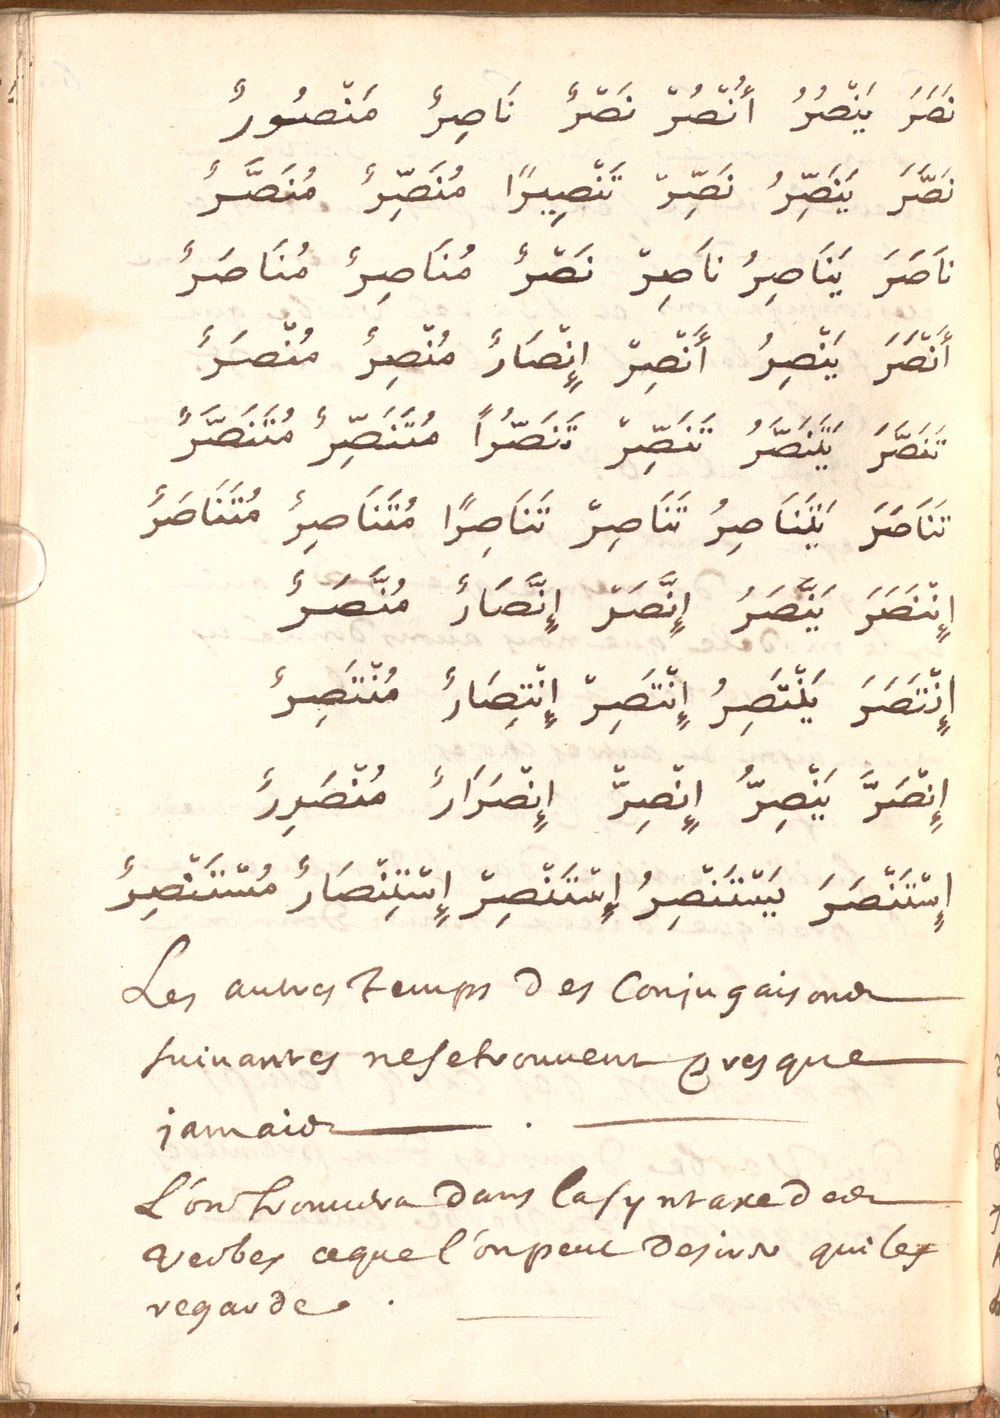 نَصَرَ يَنْصُرُ أُنْصُرْ نَصْرٌ نَاصِرٌ مَنْصُورٌ
نَصَّرَ يَنَصِّرُ نَصِّرْ تَنْصِيرًا مُنَصِّرٌ مُنَصَّرٌ
نَاصَرَ يَنَاصِرُ نَاصِرْ نَصْرٌ مُنَاصِرٌ مُنَاصَرٌ
أَنْصَرَ يَنْصِرُ أَنْصِرْ إِنْصَارٌ مُنْصِرٌ مُنْصَرٌ
تَنَصَّرَ يَتَنَصَّرُ تَنَصِّرْ تَنَصُّرًا مُتَنَصِّرٌ مُتَنَصَّرٌ
تَنَاصَرَ يَتَنَاصِرُ تَنَاصِرْ تَنَاصِرًا مُتَنَاصِرٌ مُتَنَاصَرٌ
إِنْنَصَرَ يَنَّصَرُ إِنَّصَرْ إِنَّصَارٌ مُنَّصَرٌ
إِنْتَصَرَ يَنْتَصِرُ إِنْتَصِرْ إِنْتِصَارٌ مُنْتَصِرٌ
إِنْصَرَّ يَنْصِرُّ إِنْصِرّْ إِنْصَرَارٌ مُنْصَرِرٌ
إِسْتَنْصَرَ يَسْتَنْصِرُ إِسْتَنْصِرْ إِسْتِنْصَارٌ مُسْتَنْصِرٌ
Les autres temps des Conjugaisons
suivantes nesetrouvent presque
jamais
L'on trouvera dans la syntaxe des
verbes ceque l'on peut desirer qui les
regarde.